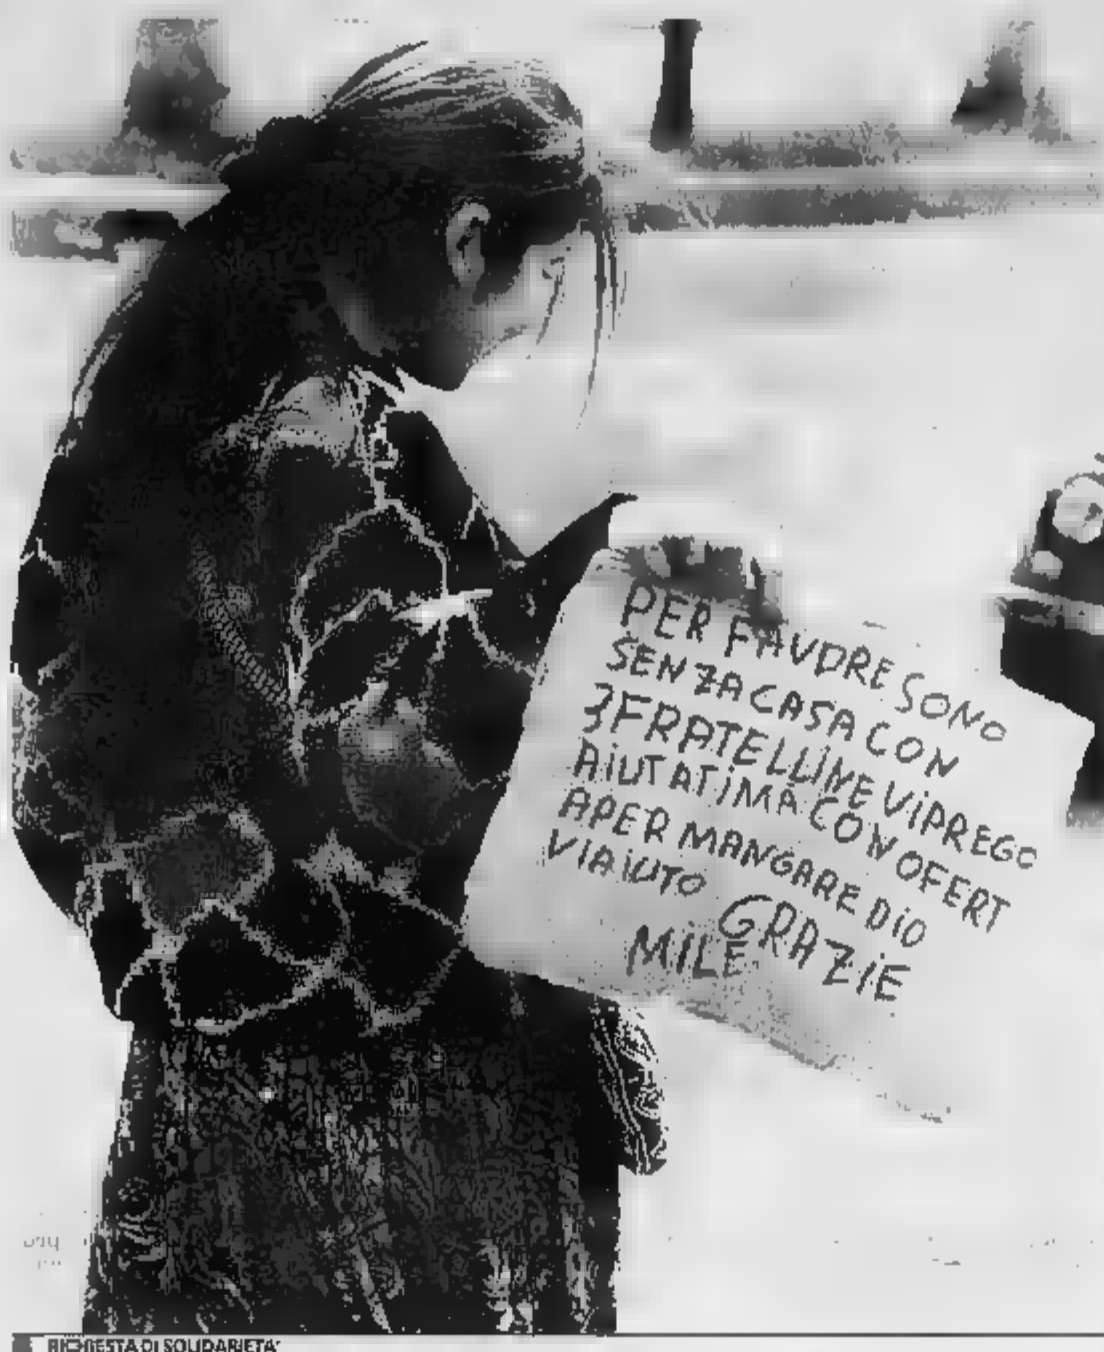 PER FAVDRE SONO
SENZA CASA CON
3 FRATELLINE VI PREGO
AIUTATIMA CON OFERT
APER MANGARE DIO
VIAIUTO GRAZIE
MILE
RICHIESTA DI SOLIDARIETA'